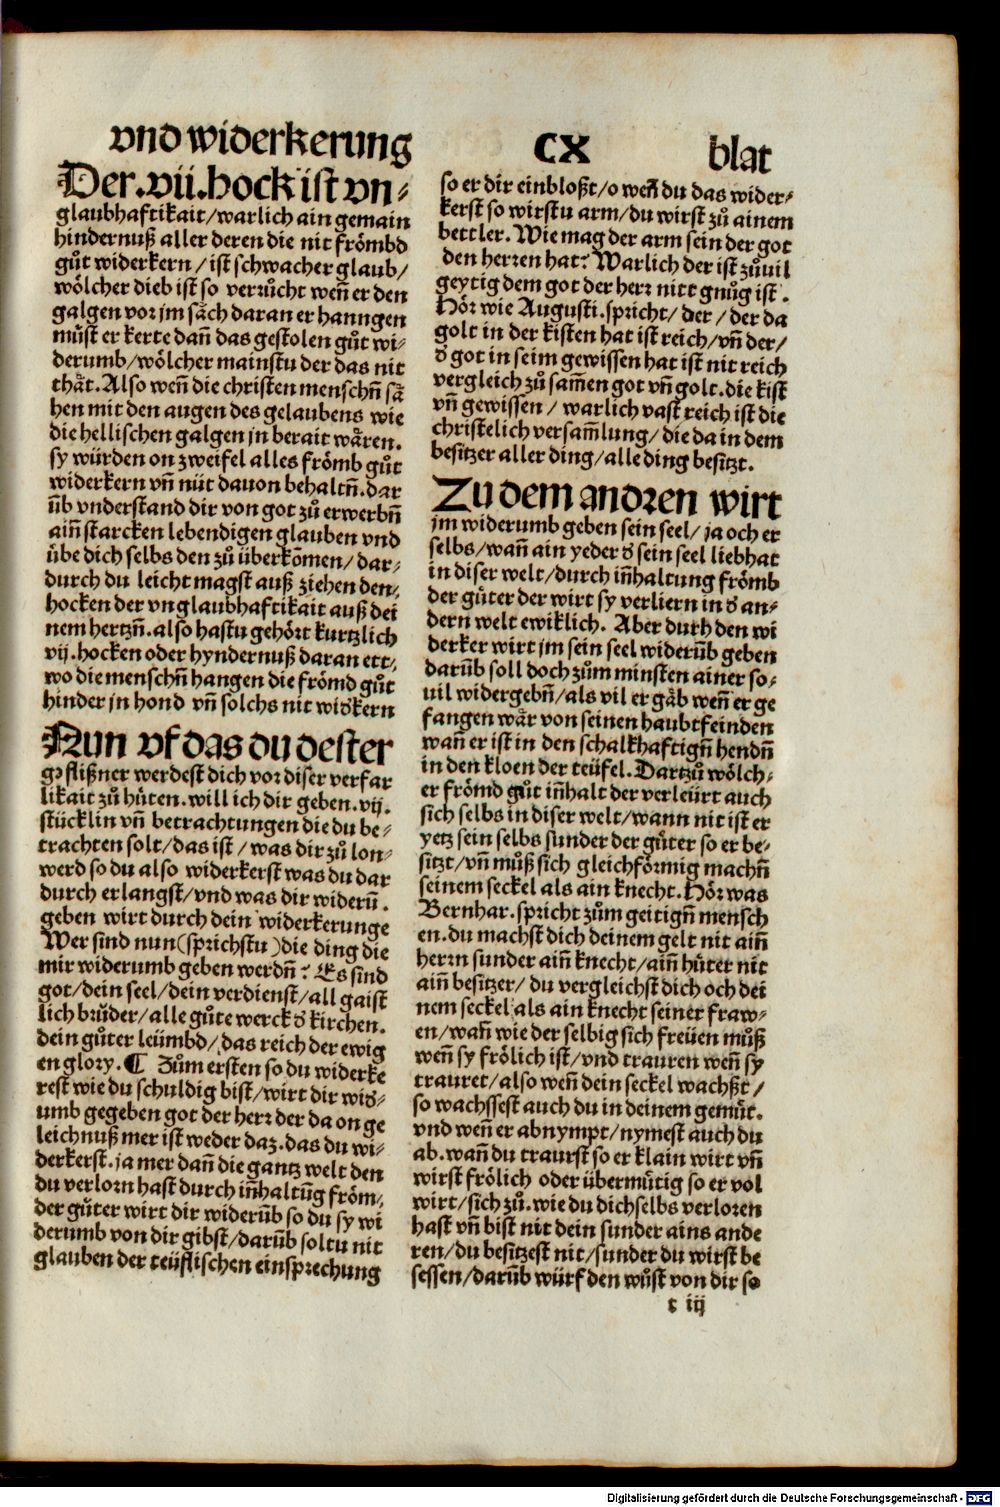 vnd widerkerung
CX
blat
Der.vii.hock ist vn-
glaubhaftikait/warlich ain gemain
hindernuß aller deren die nit frömbd
gůt widerkern/ist schwacher glaub/
wölcher dieb ist so verrůcht weñ er den
galgen vor jm säch daran er hanngen
můst er kerte dañ das gestolen gůt wi-
derumb/wölcher mainstu der das nit
thät.Also weñ die christen menschñ sä
hen mit den augen des gelaubens wie
die hellischen galgen jn berait wären.
sy würden on zweifel alles frömb gůt
widerkern vñ nüt dauon behaltñ.dar
ũb vnderstand dir von got zů erwerbñ
aiñ starcken lebendigen glauben vnd
übe dich selbs den zů überkõmen/dar-
durch du leicht magst auß ziehen den-
hocken der vnglaubhaftikait auß dei
nem hertzñ.also hastu gehört kurtzlich
vij.hocken oder hyndernuß daran ett-
wo die menschñ hangen die frömd gůt
hinder jn hond vñ solchs nit widʼkern
Nun vf das du dester
geflißner werdest dich vor diser verfar
likait zů hüten.will ich dir geben.vij.
stücklin vñ betrachtungen die du be-
trachten solt/das ist/was dir zů lon-
werd so du also widerkerst was du dar
durch erlangst/vnd was dir widerũ.
geben wirt durch dein widerkerunge
Wer sind nun(sprichstu)die ding die
mir widerumb geben werdñ? Es sind
got/dein seel/dein verdienst/all gaist
lich brůder/alle gůte werck dʼ kirchen.
dein gůter leümbd/das reich der ewig
en glory.¶ Zům ersten so du widerke
rest wie du schuldig bist/wirt dir widʼ-
umb gegeben got der herr der da on ge
leichnuß mer ist weder daz.das du wi-
derkerst.ja mer dañ die gantz welt den
du verlorn hast durch iñhaltũg fröm-
der gůter wirt dir widerũb so du sy wi
derumb von dir gibst/darũb soltu nit
glauben der teüflischen einsprechung
so er dir einbloßt/o weñ du das wider-
kerst so wirstu arm/du wirst zů ainem
bettler.Wie mag der arm sein der got
den herren hat? Warlich der ist zůuil
geytig dem got der herr nitt gnůg ist.
Hör wie Augusti.spricht/der/der da
golt in der kisten hat ist reich/vñ der/
dʼ got in seim gewissen hat ist nit reich
vergleich zů sam̃en got vñ golt.die kist
vñ gewissen/warlich vast reich ist die
christelich versam̃lung/die da in dem
besitzer aller ding/alle ding besitzt.
Zu dem andren wirt
jm widerumb geben sein seel/ja och er
selbs/wañ ain yeder dʼ sein seel liebhat
in diser welt/durch iñhaltung frömb
der güter der wirt sy verliern in dʼ an-
dern welt ewiklich. Aber durh den wi
derker wirt jm sein seel widerũb geben
darũb soll doch zům minsten ainer so-
uil widergebñ/als vil er gäb weñ er ge
fangen wär von seinen haubtfeinden
wañ er ist in den schalkhaftigñ hendñ
in den kloen der teüfel.Dartzů wölch-
er frömd gůt iñhalt der verleürt auch
sich selbs in diser welt/wann nit ist er
yetz sein selbs sunder der güter so er be-
sitzt/vñ můß sich gleichförmig machñ
seinem seckel als ain knecht.Hör was
Bernhar.spricht zům geitigñ mensch
en.du machst dich deinem gelt nit aiñ
herrn sunder aiñ knecht/aiñ hüter nit
aiñ besitzer/du vergleichst dich och dei
nem seckel als ain knecht seiner fraw-
en/wañ wie der selbig sich freüen můß
weñ sy frölich ist/vnd trauren weñ sy
trauret/also weñ dein seckel wachßt/
so wachssest auch du in deinem gemůt.
vnd weñ er abnympt/nymest auch du
ab.wañ du traurst so er klain wirt vñ
wirst frölich oder übermůtig so er vol
wirt/sich zů.wie du dichselbs verloren
hast vñ bist nit dein sunder ains ande
ren/du besitzest nit/sunder du wirst be
sessen/darũb würf den wůst von dir so
t iij
Digitalisierung gefördert durch die Deutsche Forschungsgemeinschaft - DFG